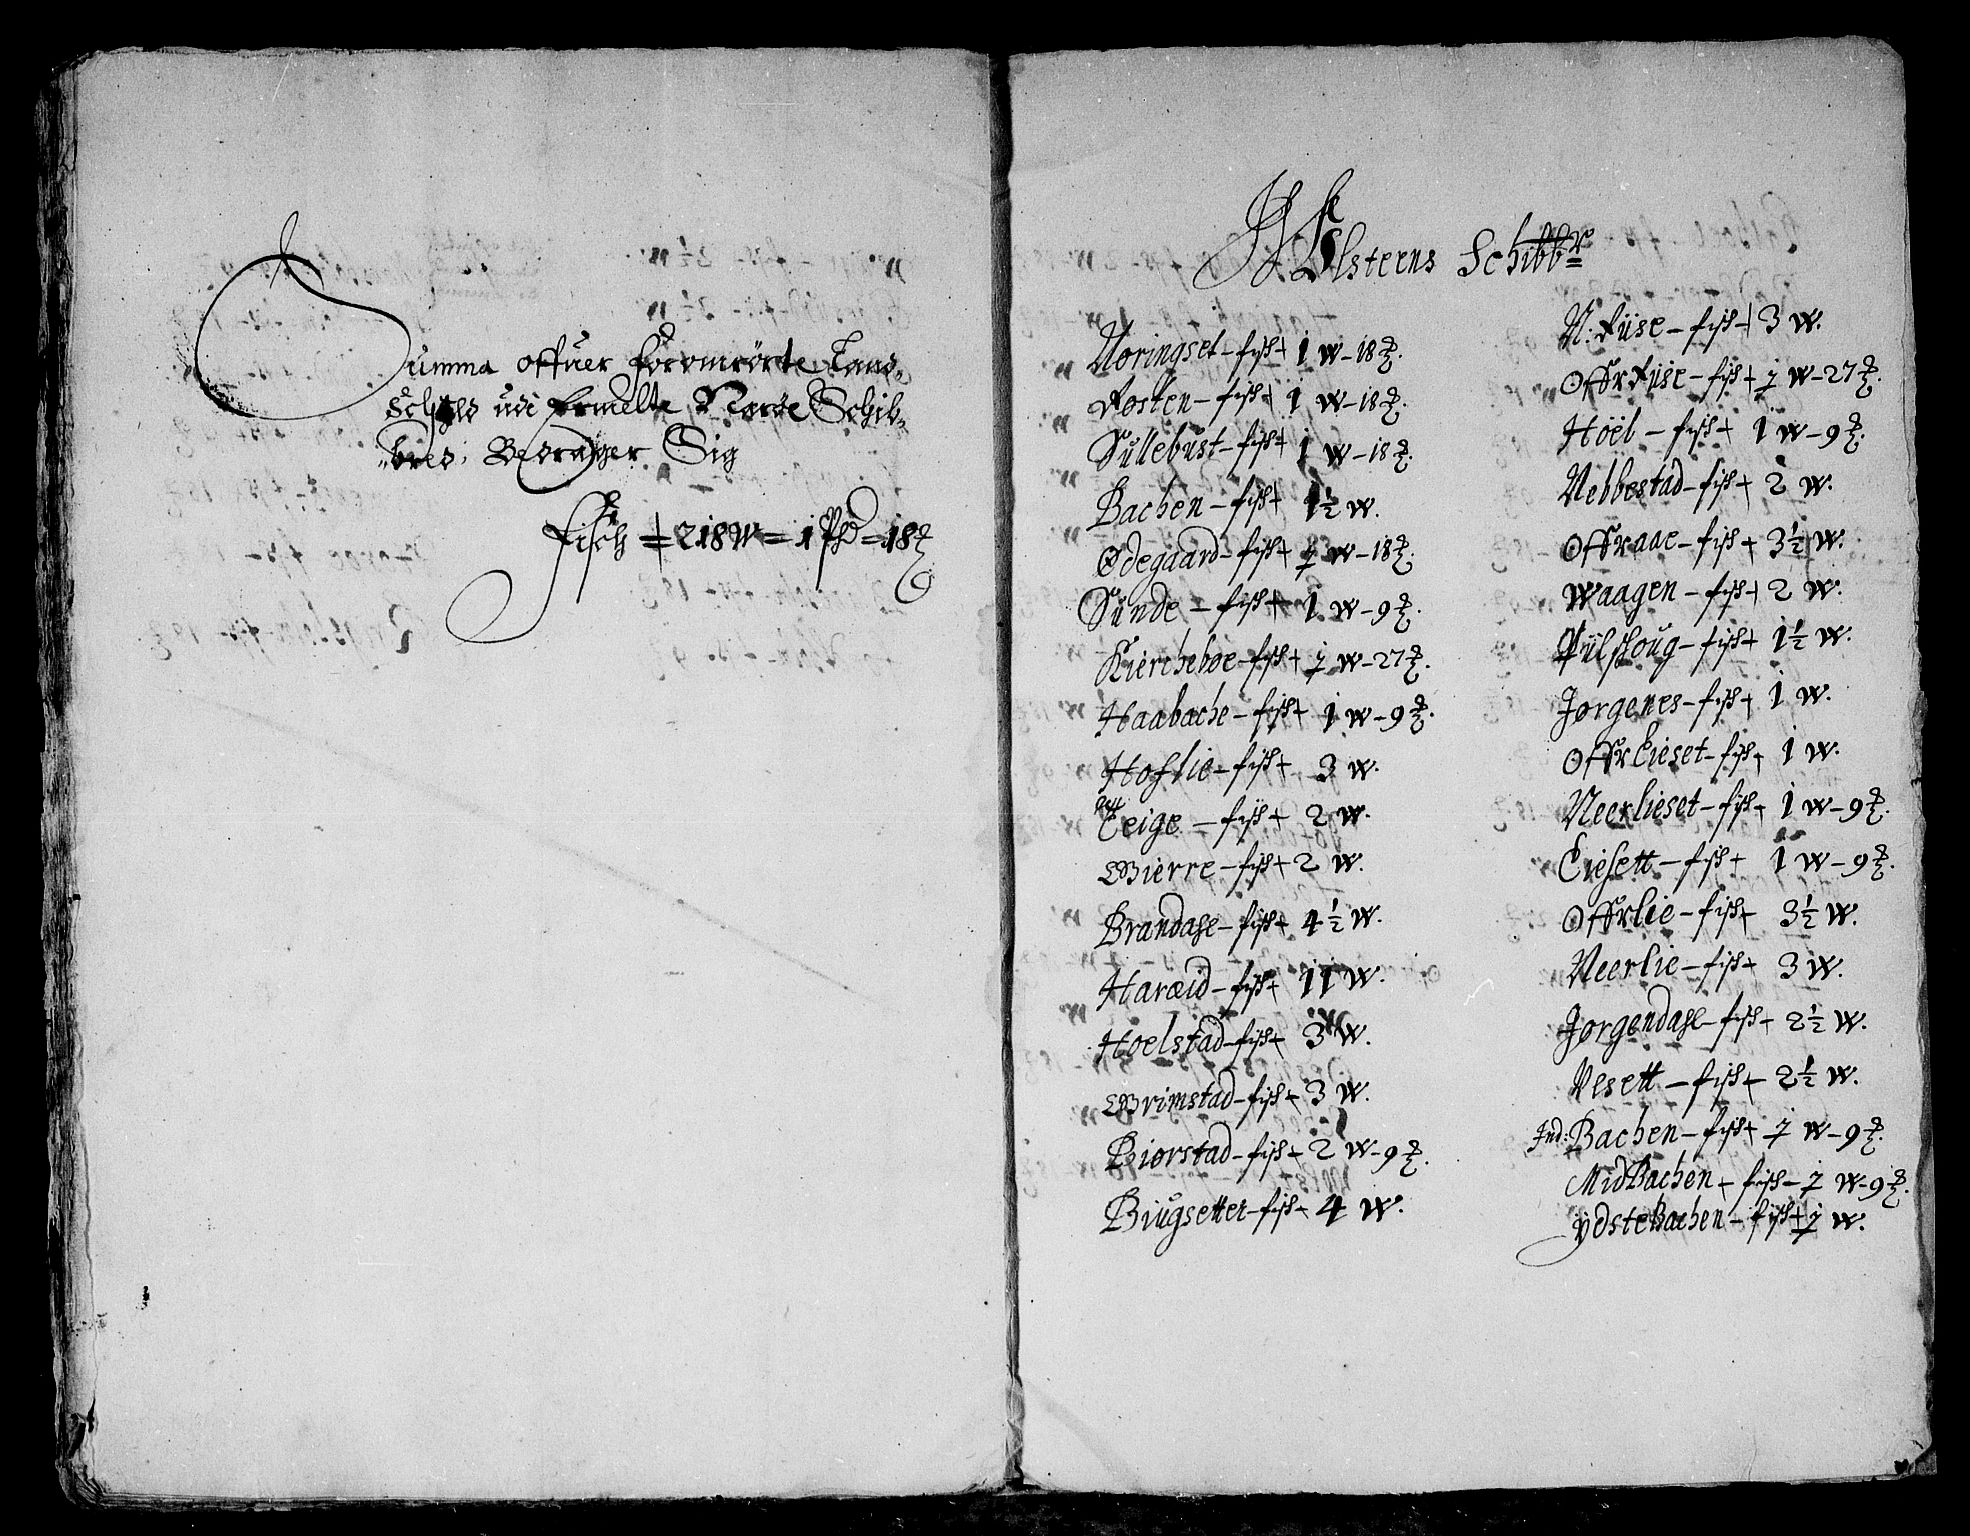 Summa offuer foromrörte Land„
Schyld udi Ermelte Nørde Schib„
„bred, Bedrager Sig
Fisch ‡ 218 W = 1 Pd = 18 ℔
Ulsteens Schibbr
Noringset – fisch + 1 W – 18 ℔.
Røsten – fisch + 1 W – 18 ℔.
Süllebust – fisch + 1 W – 18 ℔.
Bachen – fisch + 1½ W.
Ødegaard – fisch + ½ W – 18 ℔.
Sünde – fisch + 1 W – 9 ℔.
Kiercheboe – fisch + ½ W – 27 ℔.
Haabache – fisch + 1 W – 9 ℔.
Hoflie – fisch + 3 W.
Teige – fisch + 2 W.
Bierre – fisch + 2 W.
Brandahl – fisch + 4½ W.
Haræid – fisch + 11 W.
Hoelstad – fisch + 3 W.
Grimstad – fisch + 3 W.
Biørstad – fisch + 2 W – 9 ℔.
Biugsetter – fisch + 4 W.
N: Rÿse – fisch + 3 W.
Offr Rÿse – fisch + ½ W – 27 ℔.
Hoël – fisch + 1 W – 9 ℔.
Nebbestad – fisch + 2 W.
Offraae – fisch + 3½ W.
Waagen – fisch + 2 W.
Pülschoug – fisch + 1½ W.
Jørgenes – fisch + 1 W.
Offr Lieset – fisch + 1 W.
Neerlieset – fisch + 1 W – 9 ℔.
Liesett – fisch + 1 W – 9 ℔.
Offrlie – fisch + 3½ W.
Neerlie – fisch + 3 W.
Jørgendahl – fisch + 2½ W.
Vesett – fisch + 2½ W.
Ind: Bachen – fisch + ½ W – 9 ℔.
MidBachen + fisch – ½ W – 9 ℔.
ÿdsteBachen – fisch + ½ W.